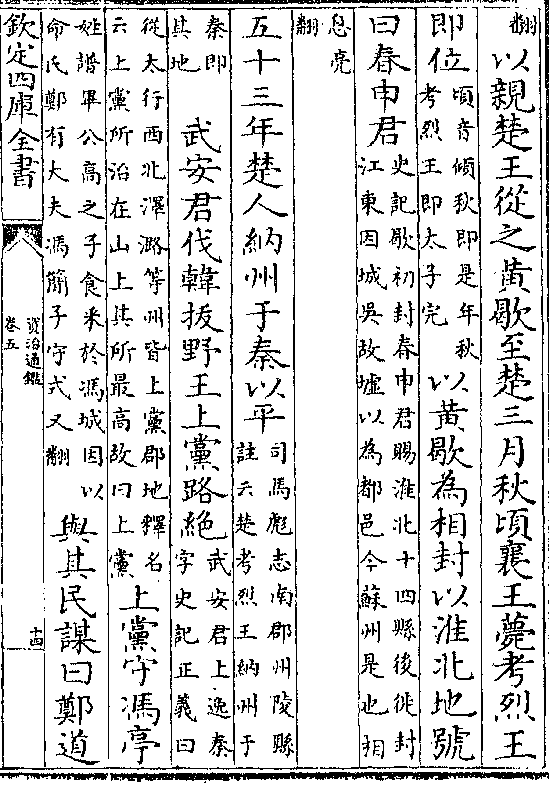 翻以親楚王從之黄歇至楚三月秋頃襄王薨考烈王
即位頃音傾秋即是年秋考烈王即太子完以黄歇為相封以淮北地號
曰春申君史記歇初封春申君賜淮北十四縣後徙封江東因城吳故墟以為都邑今蘇州是也相
息亮翻
五十三年楚人納州于秦以平司馬彪志南郡州陵縣註云楚考烈王納州于
秦即其地武安君伐韓拔野王上黨路絶武安君上逸秦字史記正義曰
從太行西北澤潞等州皆上黨郡地釋名云上黨所治在山上其所最高故曰上黨上黨守馮亭
姓譜畢公高之子食采於馮城因以命氏鄭有大夫馮簡子守式又翻與其民謀曰鄭道
欽定四庫全書
資治通鑑
卷五
十四